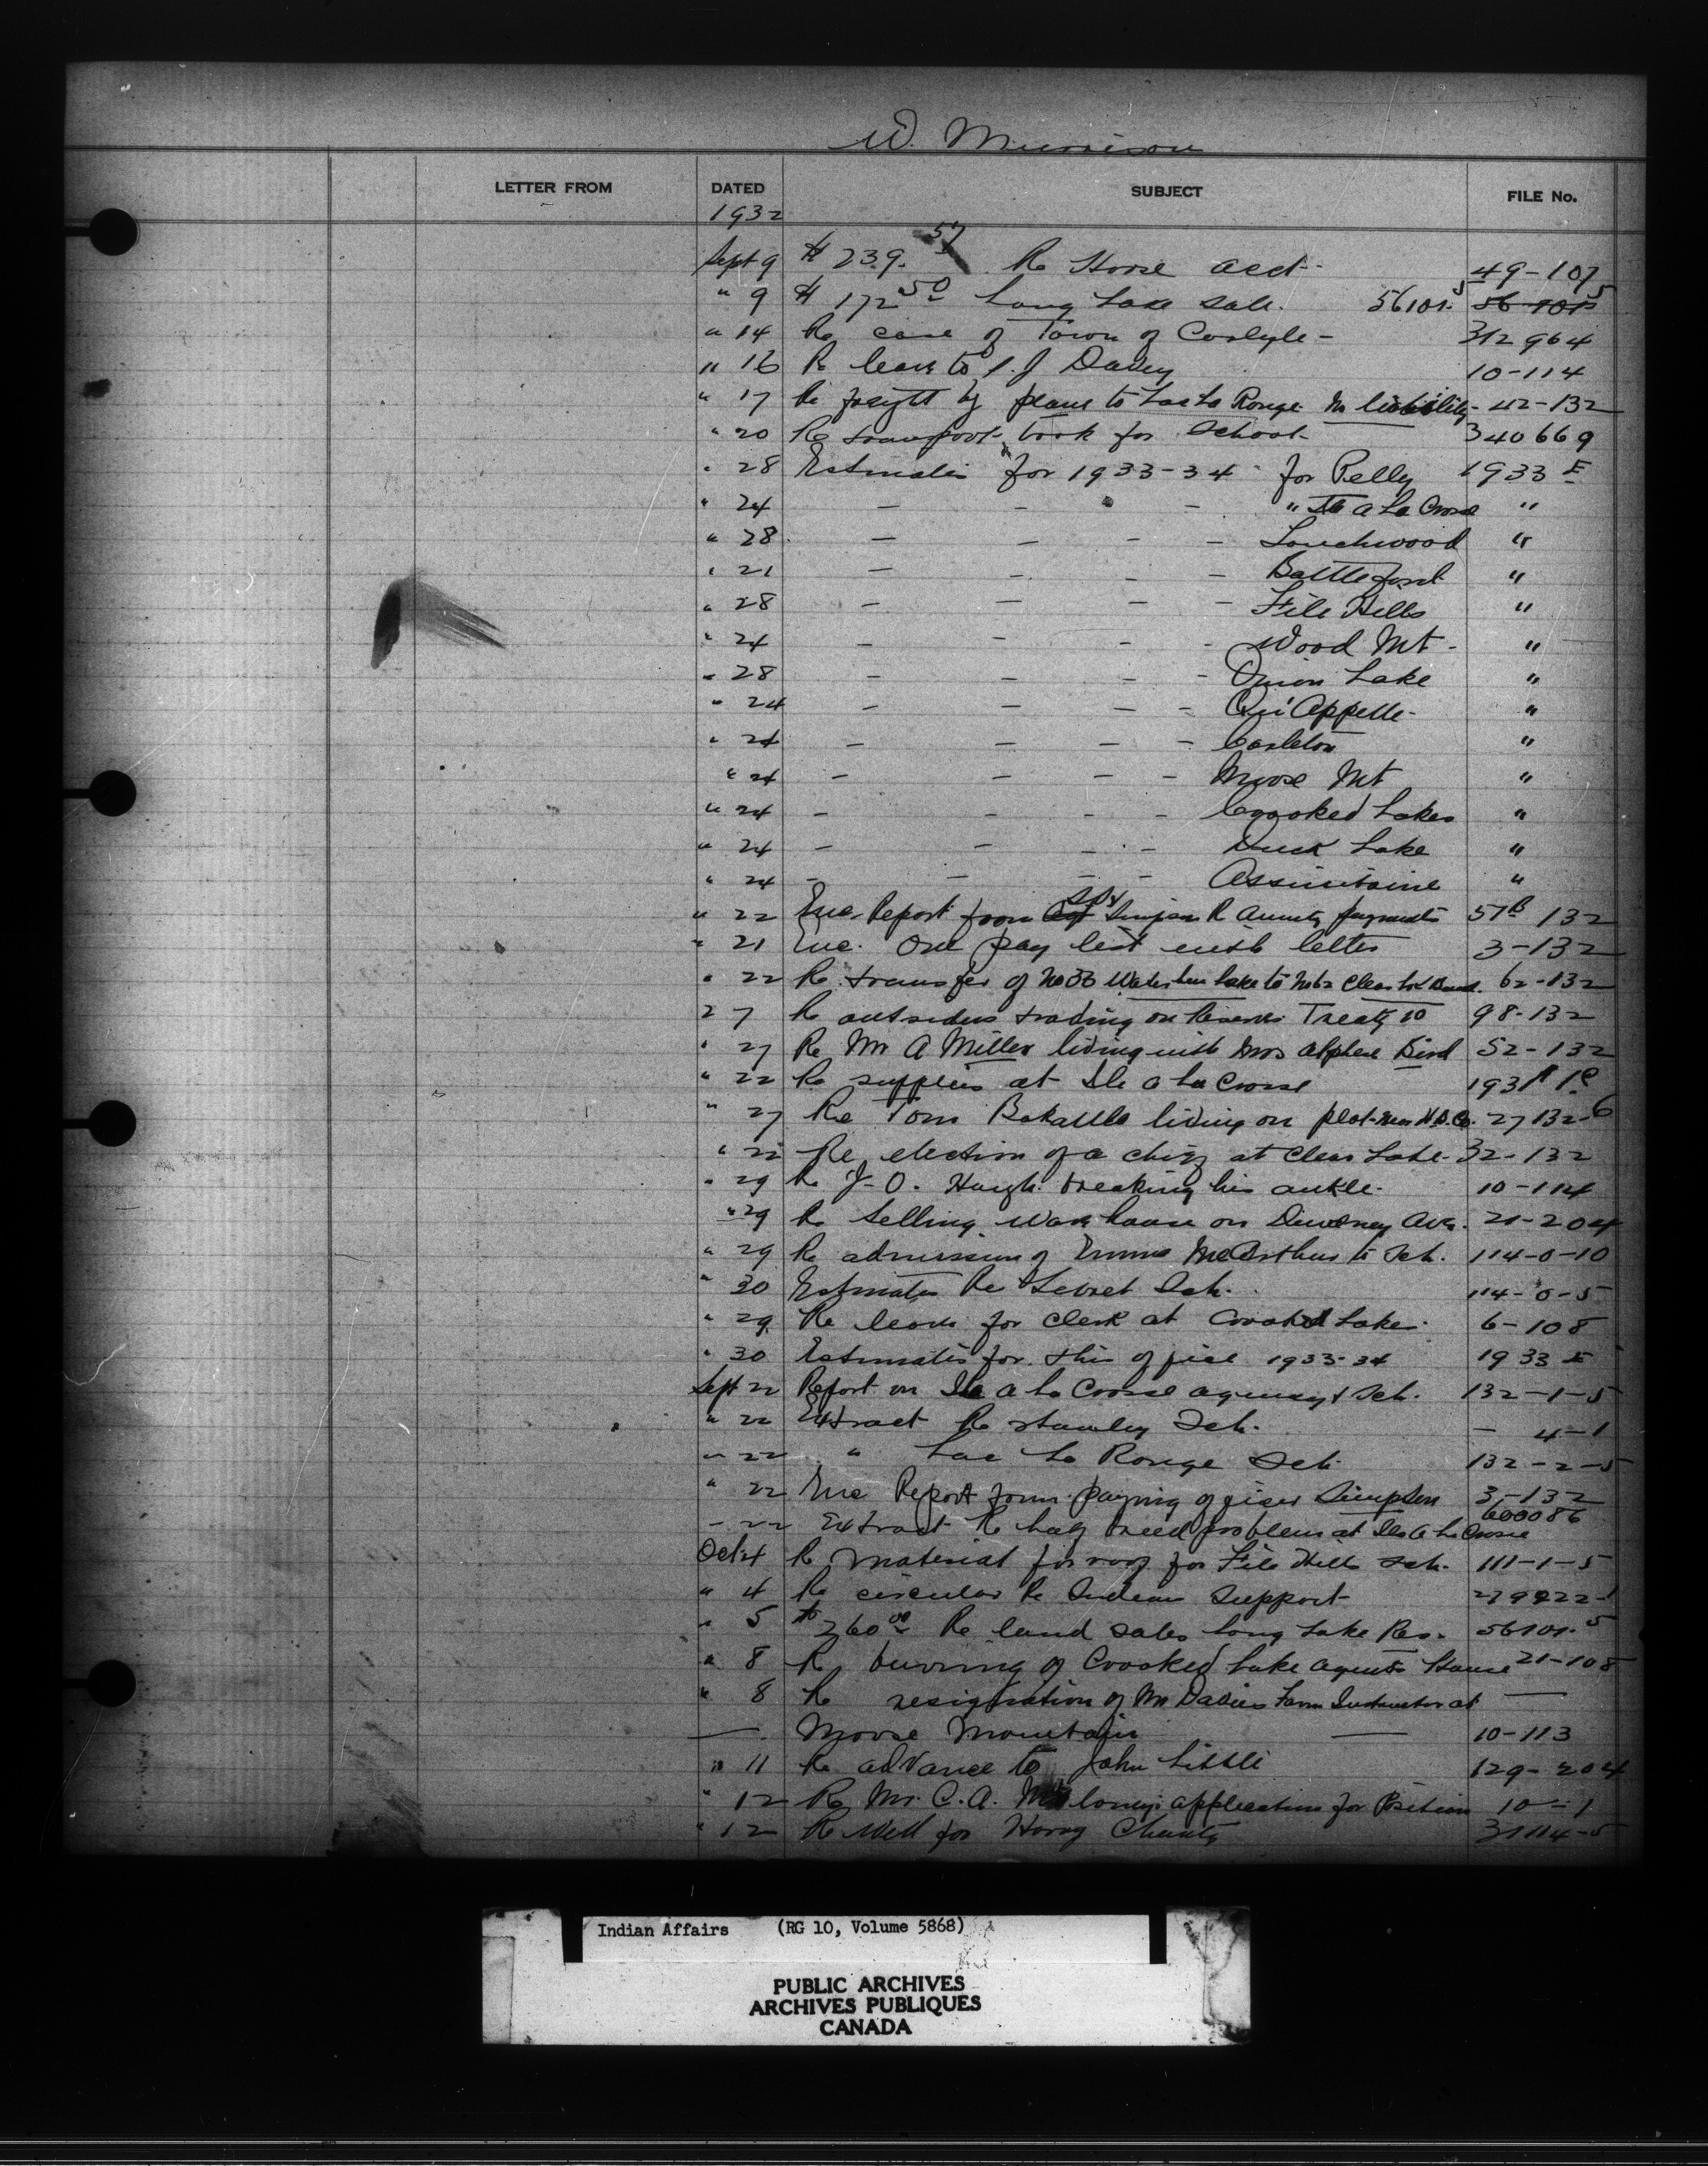 W. Murrison
LETTER FROM DATED SUBJECT FILE No.
1932
Sept 9 $ 239.57 Re Horse acct- 49-107
" 9 $ 172 50 Long Lake Sale. 56101-5 56101-5
" 14 Re case of Town of Carlyle- 312964
" 16 Re leave to J. Davey 10-114
" 17 Re freight by plane to Lac La Ronge. No liability- 42-132
" 20 Re transport- book for School- 340669
" 28 Estimates for 1933-34 for Pelly 1933 E
" 24 — — — " Ile a La Crosse "
" 28 — — — — Touchwood "
" 21 — — — — Battleford "
" 28 — — — — File Hills "
" 24 — — — — Wood Mt- "
" 28 — — — — Onion Lake "
" 24 — — — — Qu'Appelle- "
" 24 — — — — Carleton "
" 24 — — — — Moose Mt "
" 24 — — — — Crooked Lakes "
" 24 — — — — Duck Lake "
" 24 — — — — Assiniboine "
" 22 Enc. Report from Simpson R annuity payments 57B 132
" 21 Enc. One pay list with letter 3-132
" 22 Re transfer of No 33 Waterhen Lake to No 62 Clear Lk Band. 62-132
27 Re outsiders trading on Reserves Treaty 10 98-132
" 27 Re Mr A Miller living with Mrs Alphese Bird 52-132
" 22 Re supplies at Ile a La Crosse 1931
" 27 Re Tom living on plot near H.B.Co. 27132-6
" 22 Re election of a chief at Clear Lake- 32-132
" 29 Re J-O. Hugh breaking his ankle- 10-114
" 29 Re Selling warehouse on Dewdney Ave. 21-204
" 29 Re admission of Emma McArthur to Sch. 114-0-10
" 30 Estimates Re Lebret Sch. 114-0-5
" 29 Re leave for clerk at Crooked Lake- 6-108
" 30 Estimates for this office 1933-34 1933 E
Sept 22 Report on Ile a La Crosse agency & Sch. 132-1-5
" 22 Extract Re Stanley Sch. — 4-1
" 22 " Lac La Ronge Sch 132-2-5
" 22 Enc Report from paying officer Simpson 3-132
- 22 Extract Re half breed problem at Ile a La Crosse 600086
Oct 4 Re Material for roof for File Hills Sch. 111-1-5
" 4 Re circular Re Indian Support- 279222-1
" 5 $ 260 00 Re land sales Long Lake Res. 56101-5
" 8 Re burning of Crooked Lake Agents House 21-108
" 8 Re resignation of Mr Davies Farm Instructor at —
— Moose Mountain — 10-113
" 11 Re advance to John Little 129-204
" 12 Re Mr. C. A. Maloney's application for Position 10-1
" 12 Re Well for Harry 3114-5
Indian Affairs (RG 10, Volume 5868)
PUBLIC ARCHIVES
ARCHIVES PUBLIQUES
CANADA